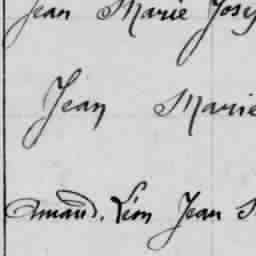 Jean Marie Josep
Jean Marie
Amand. Léon Jean